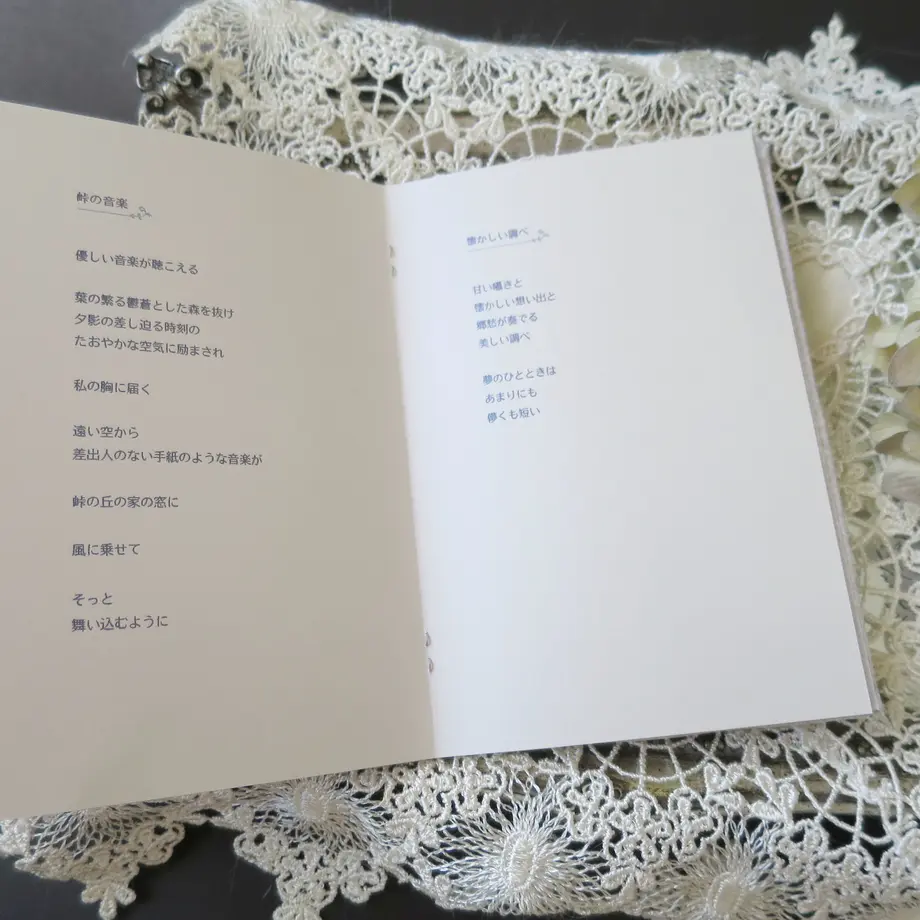 峠の音楽
優しい音楽が聴こえる
葉の繁る鬱蒼とした森を抜け
夕影の差し迫る時刻の
たおやかな空気に励まされ
私の胸に届く
遠い空から
差出人のない手紙のような音楽が
峠の丘の家の窓に
風に乗せて
そっと
舞い込むように
懐かしい調べ
甘い囁きと
懐かしい想い出と
郷愁が奏でる
美しい調べ
夢のひとときは
あまりにも
儚くも短い